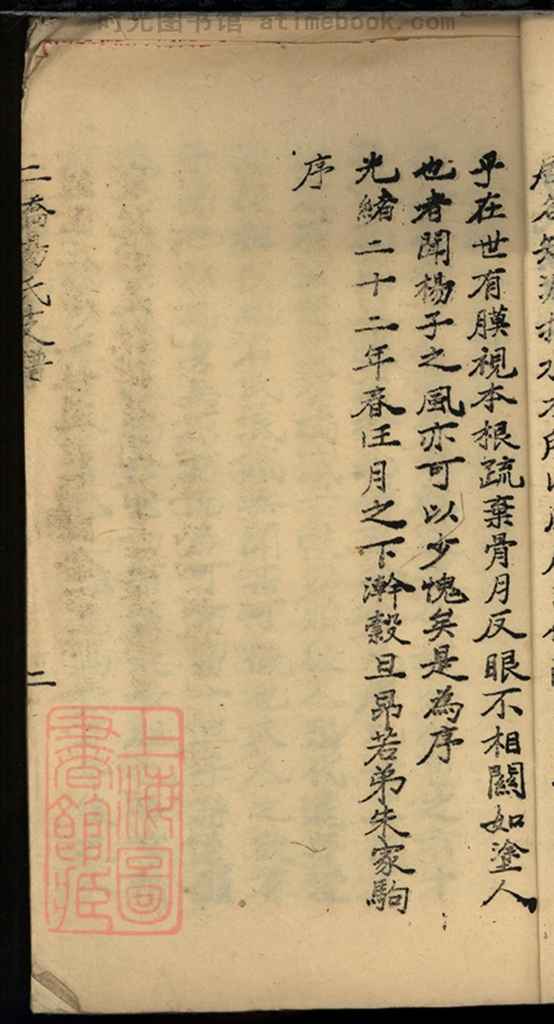 时光图书馆 atimebook.com
乎在世有膜視本根疏棄骨月反眼不相關如塗人
也者聞楊子之風亦可以少愧矣是為序
光緒二十二年春王月之下澣穀旦昂若弟朱家駒
序
二橋楊氏支譜
二
上海圖
書館藏